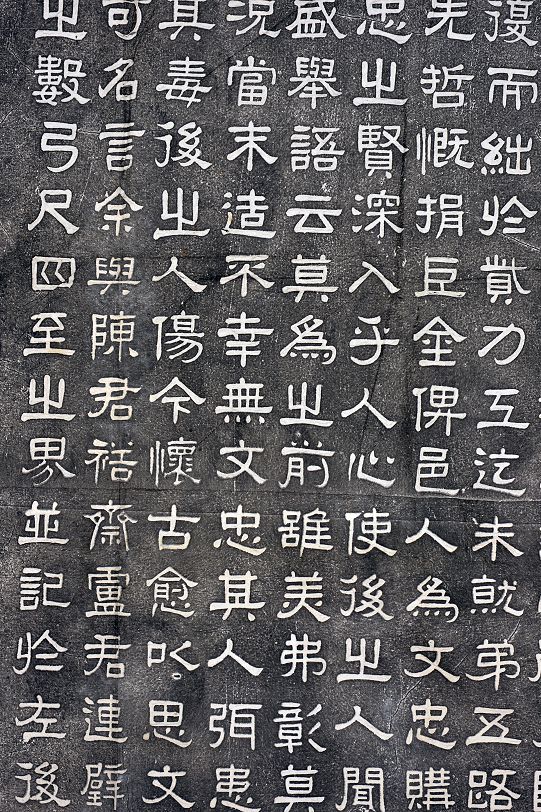 復而絀於貲力工迄未就弟五路
先哲慨捐巨金俾邑人為文忠購
忠之賢深入乎人心使後之人聞
盛舉語云莫為之前雖美弗彰莫
況當末造不幸無文忠其人弭患
其毒後之人傷今懷古愈以思文
可名言余與陳君裕齋盧君連璧
之數弓尺四至之界並記於左後